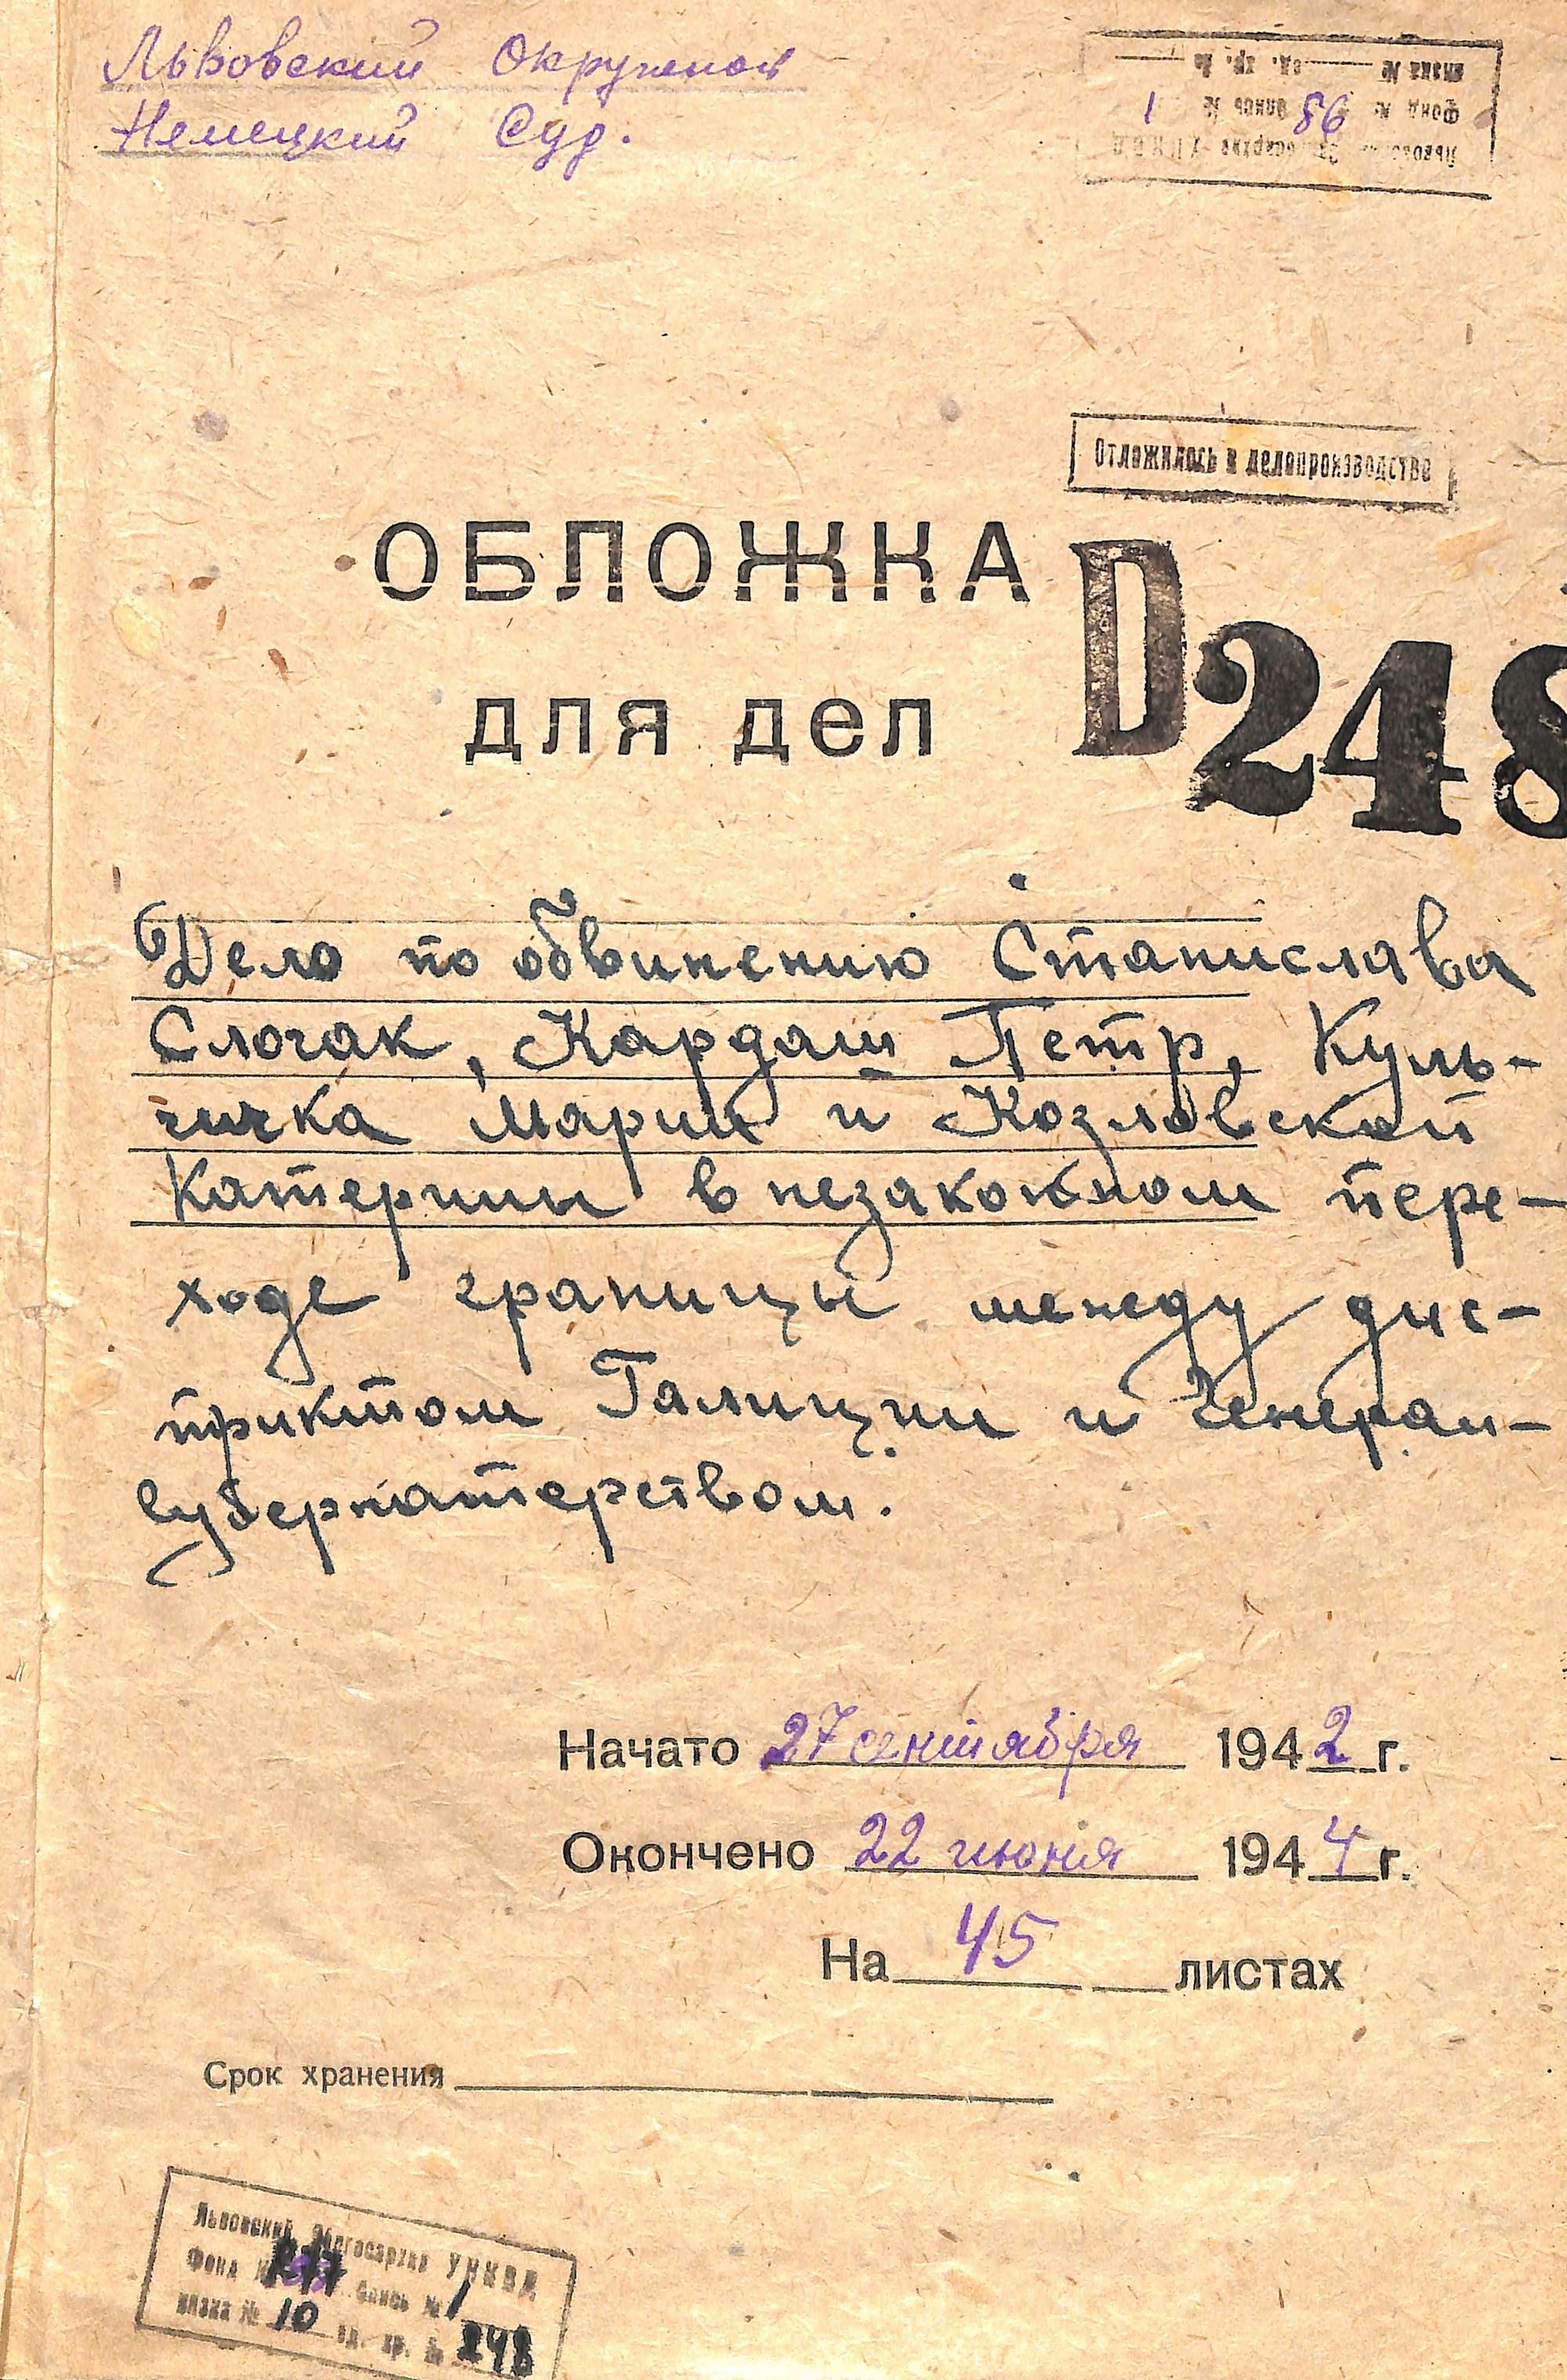 Львовский Окружной
Немецкий Суд.
Львовский Облгосархив УНКВД
Фонд № 86 опись № 1
вязка № ед. хр. №
Отложилось в делопроизводстве
ОБЛОЖКА
для дел
D248
Дело по обвинению Станислава
Слогак, Кардаш Петр, Куль-
чичка Марии и Козловской
Катерины в незаконном пере-
ходе границы между дис-
триктом Галиции и Генерал-
губернаторством.
Начато 27 сентября 1942 г.
Окончено 22 июня 1944 г.
На 45 листах
Срок хранения
Львовский Облгосархив УНКВД
Фонд № опись № 1
вязка № 10 ед. хр. № 248